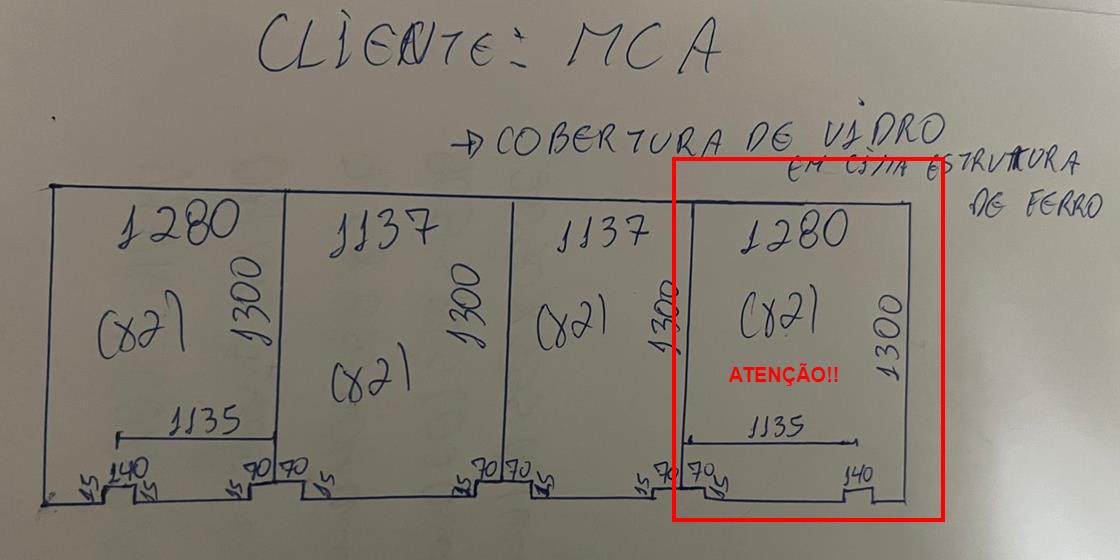 CLIENTE: MCA
→ COBERTURA DE VIDRO
EM CIMA ESTRUTURA
DE FERRO
1280 1137 1137 1280
1300 1300 1300 1300
(x2) (x2) (x2) (x2)
ATENÇÃO!!
1135 1135
15 140 15 15 70 70 15 15 70 70 15 15 70 70 15 140